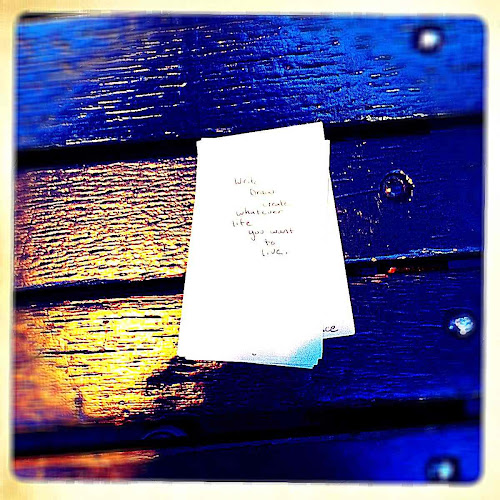 Write
Draw
create
whatever
life
you want
to
live.